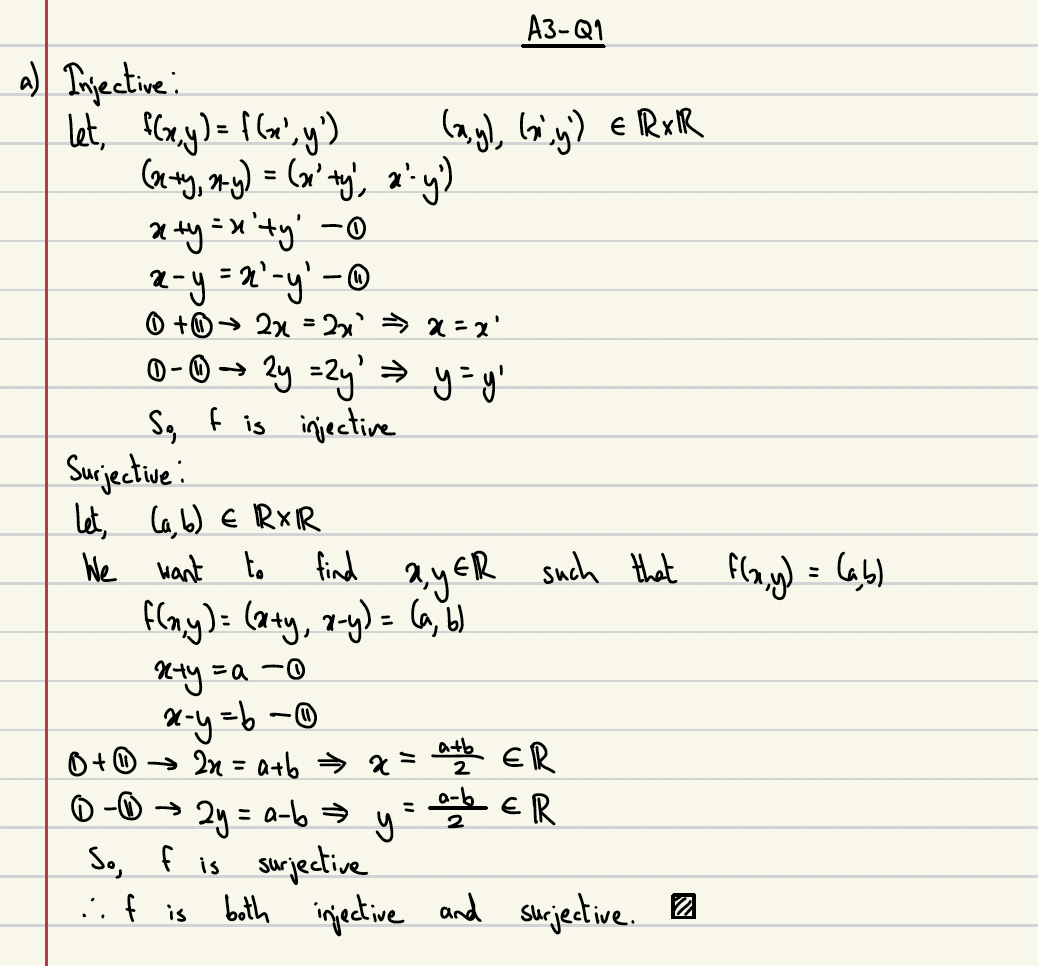 A3-Q1
a) Injective:
Let, f(x,y) = f(x',y') (x,y), (x',y') ∈ ℝ×ℝ
(x+y, x-y) = (x'+y', x'-y')
x+y = x'+y' — Ⓘ
x-y = x'-y' — Ⓘ̲Ⓘ
Ⓘ + ⑪ → 2x = 2x' ⇒ x = x'
Ⓘ - ⑪ → 2y = 2y' ⇒ y = y'
So, f is injective
Surjective:
Let, (a,b) ∈ ℝ×ℝ
We want to find x,y ∈ ℝ such that f(x,y) = (a,b)
f(x,y) = (x+y, x-y) = (a, b)
x+y = a — Ⓘ
x-y = b — ⑪
Ⓘ + ⑪ → 2x = a+b ⇒ x = a+b/2 ∈ ℝ
Ⓘ - ⑪ → 2y = a-b ⇒ y = a-b/2 ∈ ℝ
So, f is surjective
∴ f is both injective and surjective. ▨